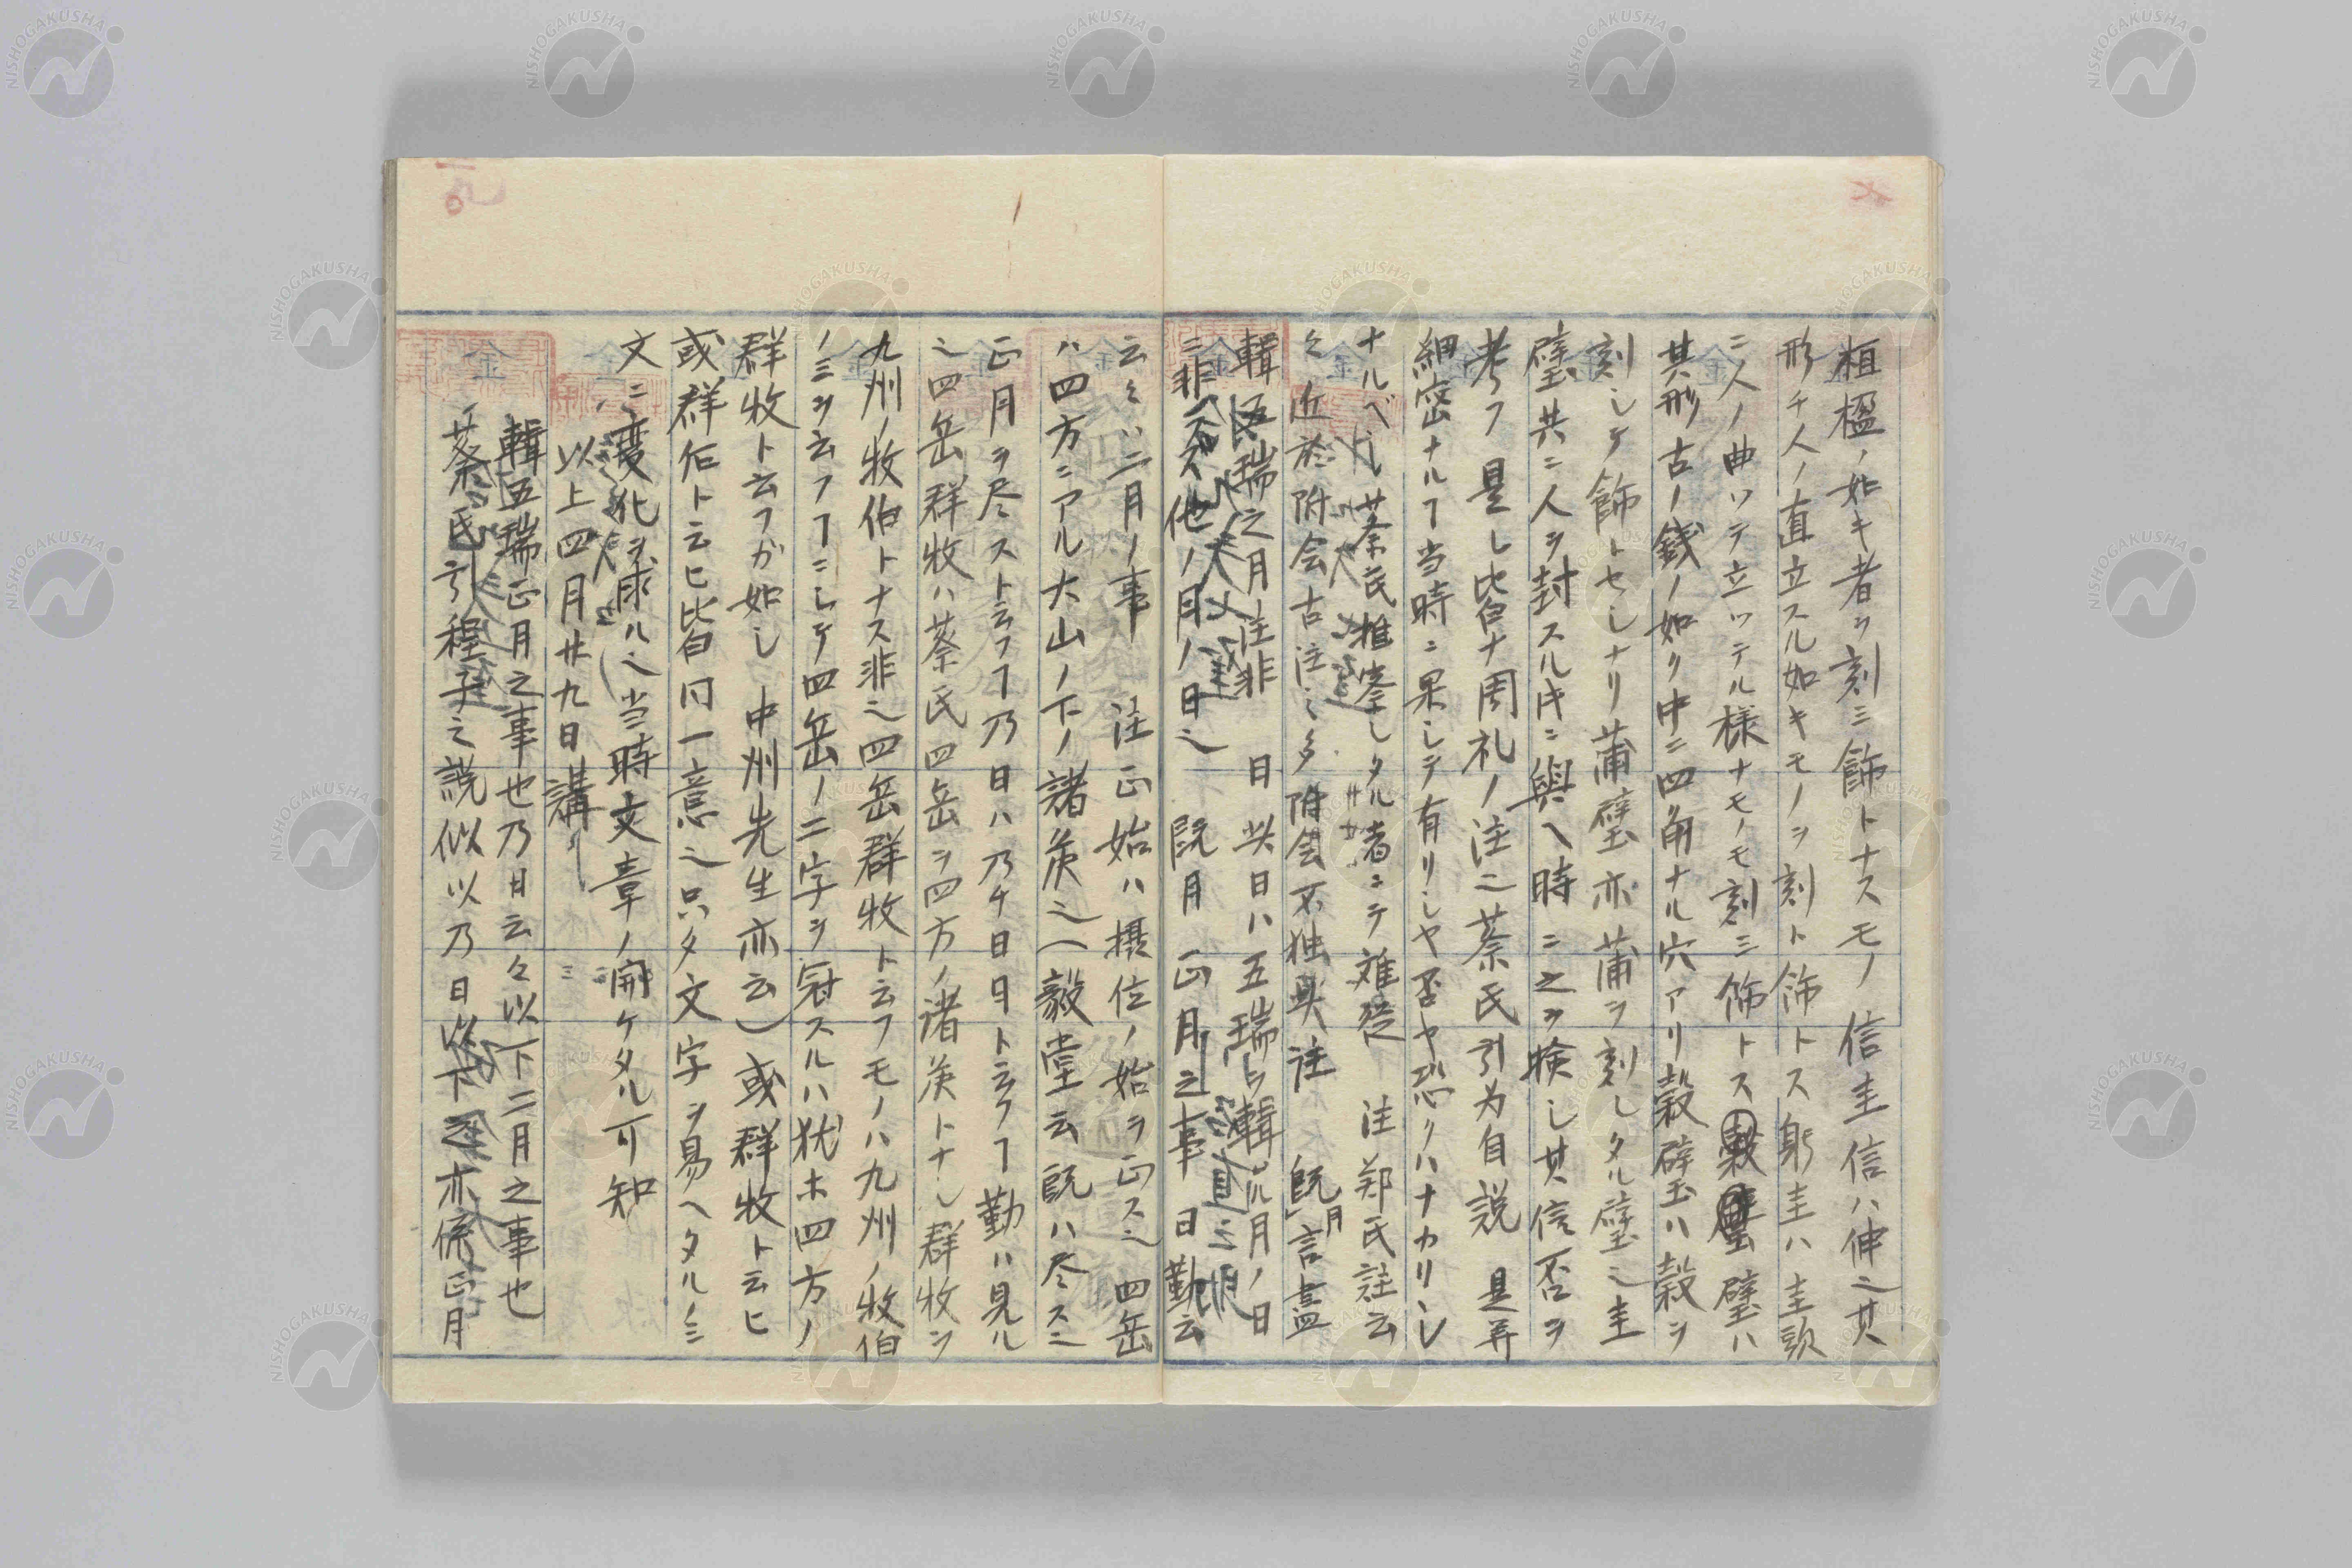 粗楹ノ如キ者ヲ刻ミ飾トナスモノ信圭信ハ伸之其
形チ人ノ直立スル如キモノヲ刻ト飾トス躬圭ハ圭頭
ニ人ノ曲ツテ立ツテル様ナモノモ刻ミ飾トス穀璧ハ
其形古ノ銭ノ如ク中ニ四角ナル穴アリ穀璧玉ハ穀ヲ
刻シテ飾トセシナリ蒲璧亦蒲ヲ刻シタル璧之圭
璧共ニ人ヲ封スル片ニ與ヘ時ニ之ヲ検シ其信否ヲ
考フ是レ皆ナ周礼ノ注之蔡氏引為自説是并
細密ナルヿ当時ニ果シテ有リシヤ否ヤ恐クハナカリシ
ナルベシ蔡氏推峯シタル者ニテ難從注郑氏註云
々近於附会古注之多附会不独具注既月言盡
輯五瑞之月注非日此日ハ五瑞ヲ輯ル月ノ日
ニ非ス他ノ月ノ日之既月正月之事日勤云
云々ハ二月ノ事注正始ハ摂位ノ始ヲ正ス之四岳
ハ四方ニアル大山ノ下ノ諸矦之(毅堂云既ハ尽ス之
正月ヲ尽スト云フヿ乃日ハ乃チ日日ト云フヿ勤ハ見ル
之四岳群牧ハ蔡氏四岳ヲ四方ノ諸矦トナシ群牧ヲ
九州ノ牧伯トナス非之四岳群牧ト云フモノハ九州ノ牧伯
ノミヲ云フヿニシテ四岳ノ二字ヲ冠スルハ犹ホ四方ノ
群牧ト云フカ如シ中州先生亦云)或群牧ト云ヒ
或群后ト云ヒ皆同一意之只タ文字ヲ易ヘタルノミ
文ニ変化ヲ求ル之当時文章ノ開ケタル可知
以上四月廿九日講
輯五瑞正月之事也乃日云々以下二月之事也
蔡氏引程子之説似以乃日以下之亦係正月